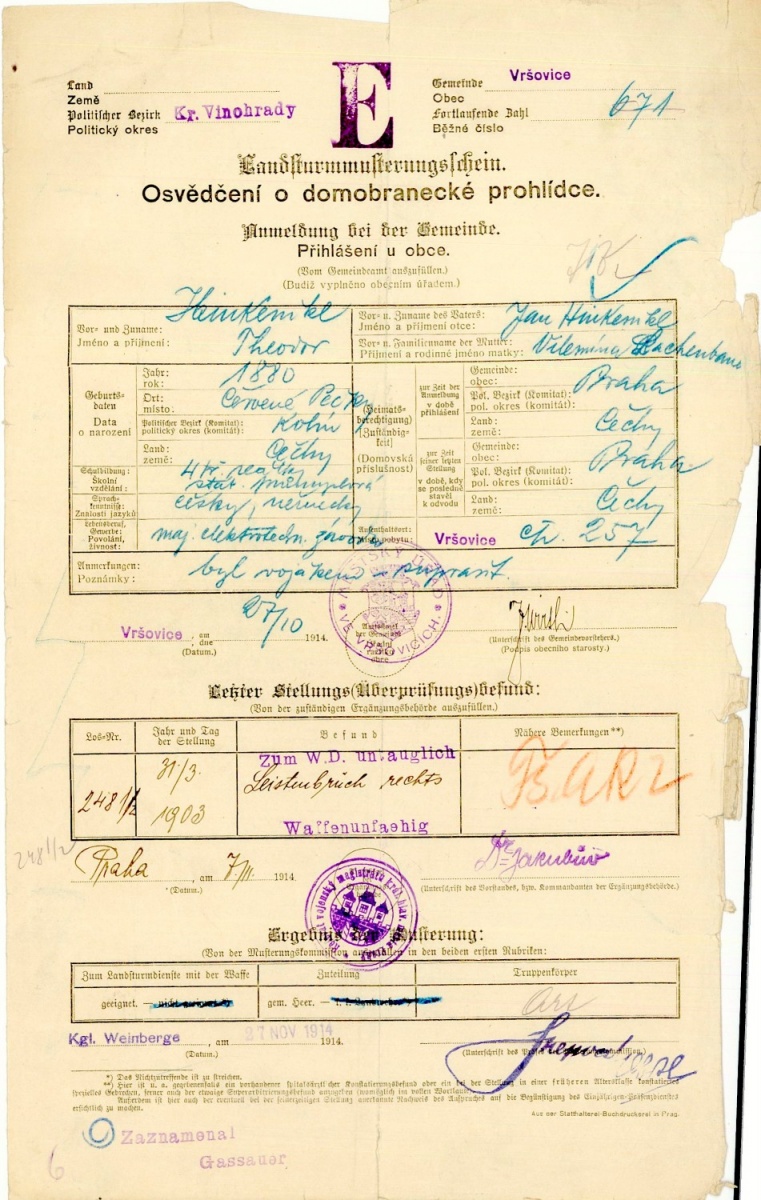 E
Land
Země
Politischer Bezirk Kr. Vinohrady
Politický okres
Gemeinde Vršovice
Obec
Fortlaufende Zahl 671
Běžné číslo
Landsturmmusterungsschein.
Osvědčení o domobranecké prohlídce.
Anmeldung bei der Gemeinde.
Přihlášení u obce.
(Vom Gemeindeamt auszufüllen.)
(Budiž vyplněno obecním úřadem.)
Vor- und Zuname: Heinkemkl
Jméno a příjmení: Theodor
Vor- u. Zuname des Vaters: Jan Hinkemkl
Jméno a příjmení otce:
Vor- u. Familienname der Mutter: Vilemína
Příjmení a rodinné jméno matky:
Geburtsdaten
Data o narození
Jahr: 1880
rok:
Ort: Červené Pečky
místo:
Politischer Bezirk (Komitat): Kolín
politický okres (komitát):
Land: Čechy
země:
(Heimatsberechtigung)
(Zuständigkeit)
(Domovská příslušnost)
zur Zeit der Anmeldung
v době přihlášení
Gemeinde: Praha
obec:
Pol. Bezirk (Komitat):
pol. okres (komitát):
Land: Čechy
země:
zur Zeit seiner letzten Stellung
v době, kdy se posledně stavěl k odvodu
Gemeinde: Praha
obec:
Pol. Bezirk (Komitat):
pol. okres (komitát):
Land: Čechy
země:
Schulbildung: 4 tř. reálky
Školní vzdělání: stát. průmyslová
Sprachkenntnisse: česky, německy
Znalosti jazyků:
Lebensberuf, Gewerbe: maj. elektrotechn. závodu
Povolání, živnost:
Aufenthaltsort: Vršovice čp. 257
Místo pobytu:
Anmerkungen: byl vojákem - suprarb.
Poznámky:
MĚSTSKÝ ÚŘAD VE VRŠOVICÍCH
Vršovice, am 27/10 1914.
dne
(Datum.)
(Unterschrift des Gemeindevorstehers.)
(Podpis obecního starosty.)
Letzter Stellungs(Überprüfungs)befund:
(Von der zuständigen Ergänzungsbehörde auszufüllen.)
Los-Nr.
Jahr und Tag der Stellung
Befund
Nähere Bemerkungen**)
248 1/2
31./3. 1903
Zum W.D. untauglich
Leistenbruch rechts
Waffenunfaehig
248 1/2
Praha, am 7./11. 1914.
(Datum.)
Dr Jakubův
(Unterschrift des Vorstandes, bzw. Kommandanten der Ergänzungsbehörde.)
Ergebnis der Musterung:
(Von der Musterungskommission auszufüllen in den beiden ersten Rubriken:
Zum Landsturmdienste mit der Waffe
Zuteilung
Truppenkörper
geeignet. — nicht geeignet *)
gem. Heer. —
Art
Kgl. Weinberge, am 27 NOV 1914 1914.
(Datum.)
*) Das Nichtzutreffende ist zu streichen.
**) Hier ist u. a. gegebenenfalls ein vorhandener spitalsärztlicher Konstatierungsbefund oder ein bei der Stellung in einer früheren Altersklasse konstatiertes
spezielles Gebrechen, ferner auch der etwaige Superarbitrierungsbefund anzugeben (womöglich im vollen Wortlaut).
Außerdem ist hier auch der eventuell bei der seinerzeitigen Stellung anerkannte Nachweis des Anspruches auf die Begünstigung des Einjährigen-Präsenzdienstes
ersichtlich zu machen.
Aus der Statthalterei-Buchdruckerei in Prag.
Zaznamenal
Gassauer
6